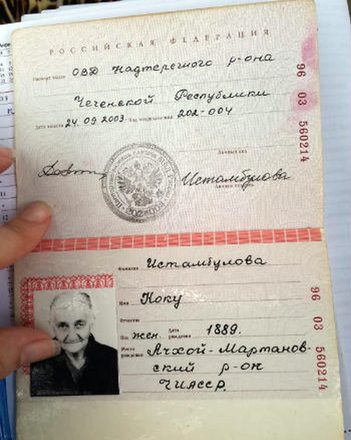 РОССИЙСКАЯ ФЕДЕРАЦИЯ
Паспорт выдан ОВД Надтеречного р-она
Чеченской Республики
Дата выдачи 24.09.2003 Код подразделения 202-004
Личный код
Истамбулова
Личная подпись
96 03 560214
Фамилия Истамбулова
Имя Коку
Отчество
Пол жен. Дата рождения 1889.
Место рождения Ачхой-Мартанов-
ский р-он
ЧИАССР
96 03 560214